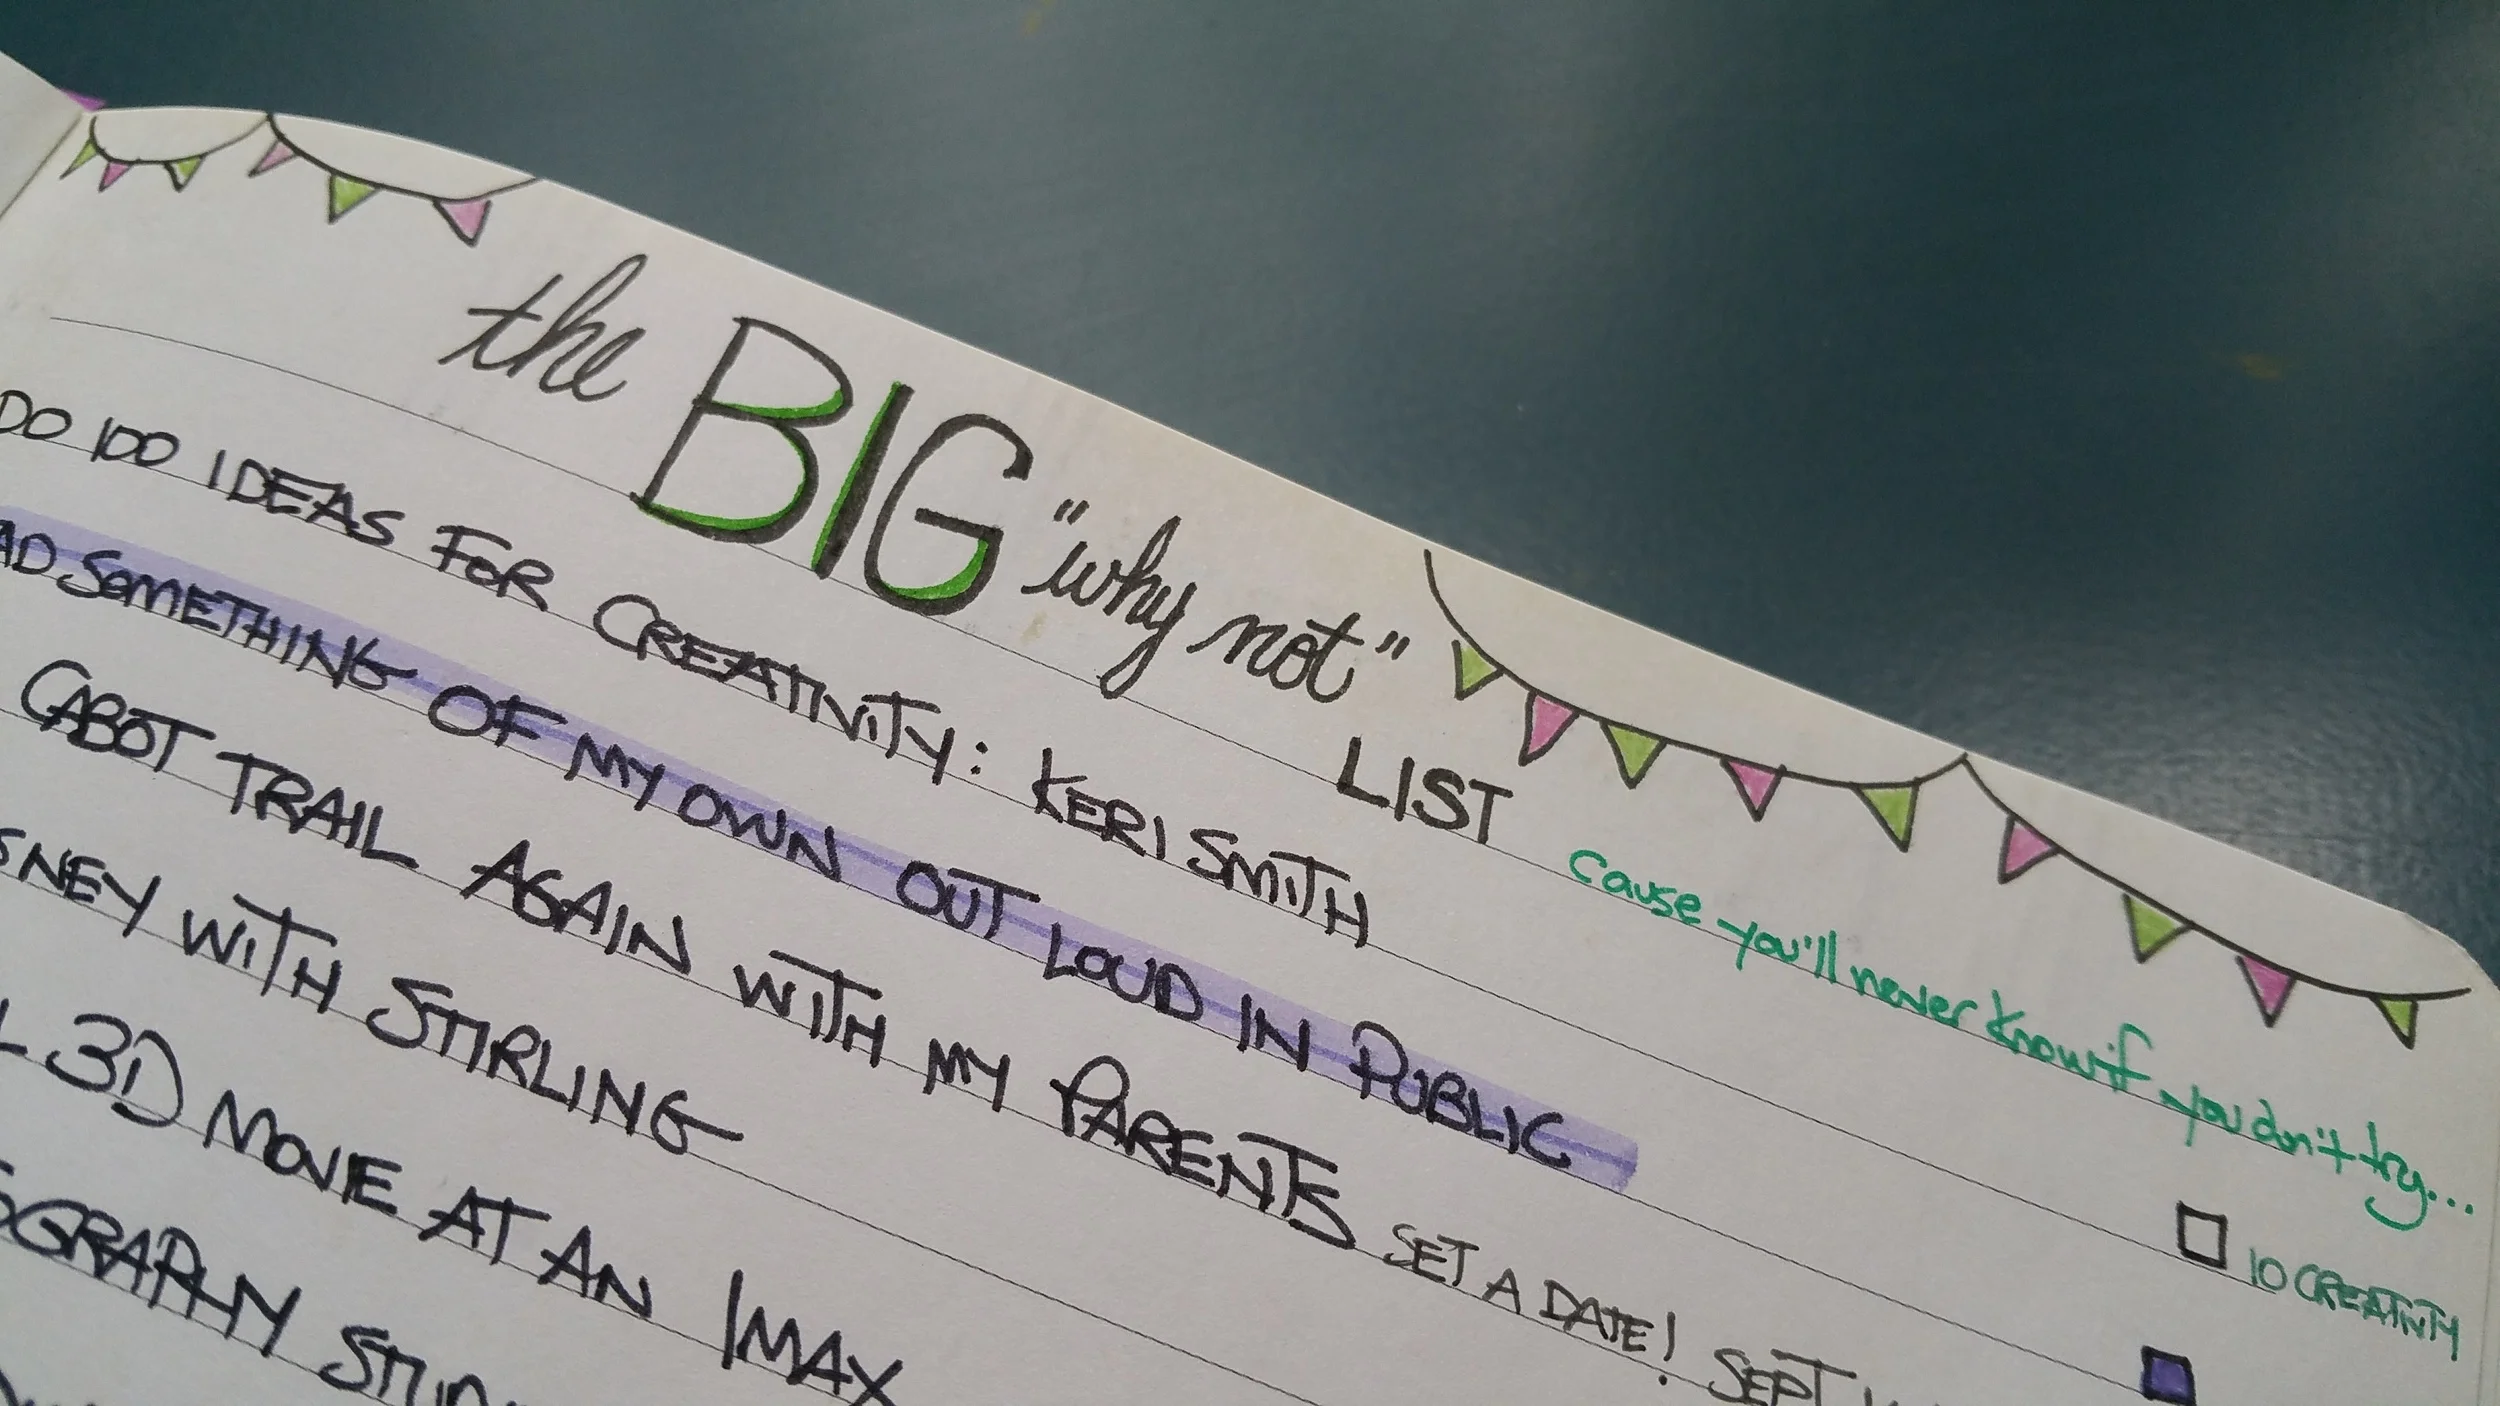 the BIG "why not" LIST
Cause you'll never know if you don't try...
DO 100 IDEAS FOR CREATIVITY: KERI SMITH
10 CREATIVITY
SOMETHING OF MY OWN OUT LOUD IN PUBLIC
CABOT TRAIL AGAIN WITH MY PARENTS SET A DATE! SEPT
WITH STIRLING
3D MOVIE AT AN IMAX